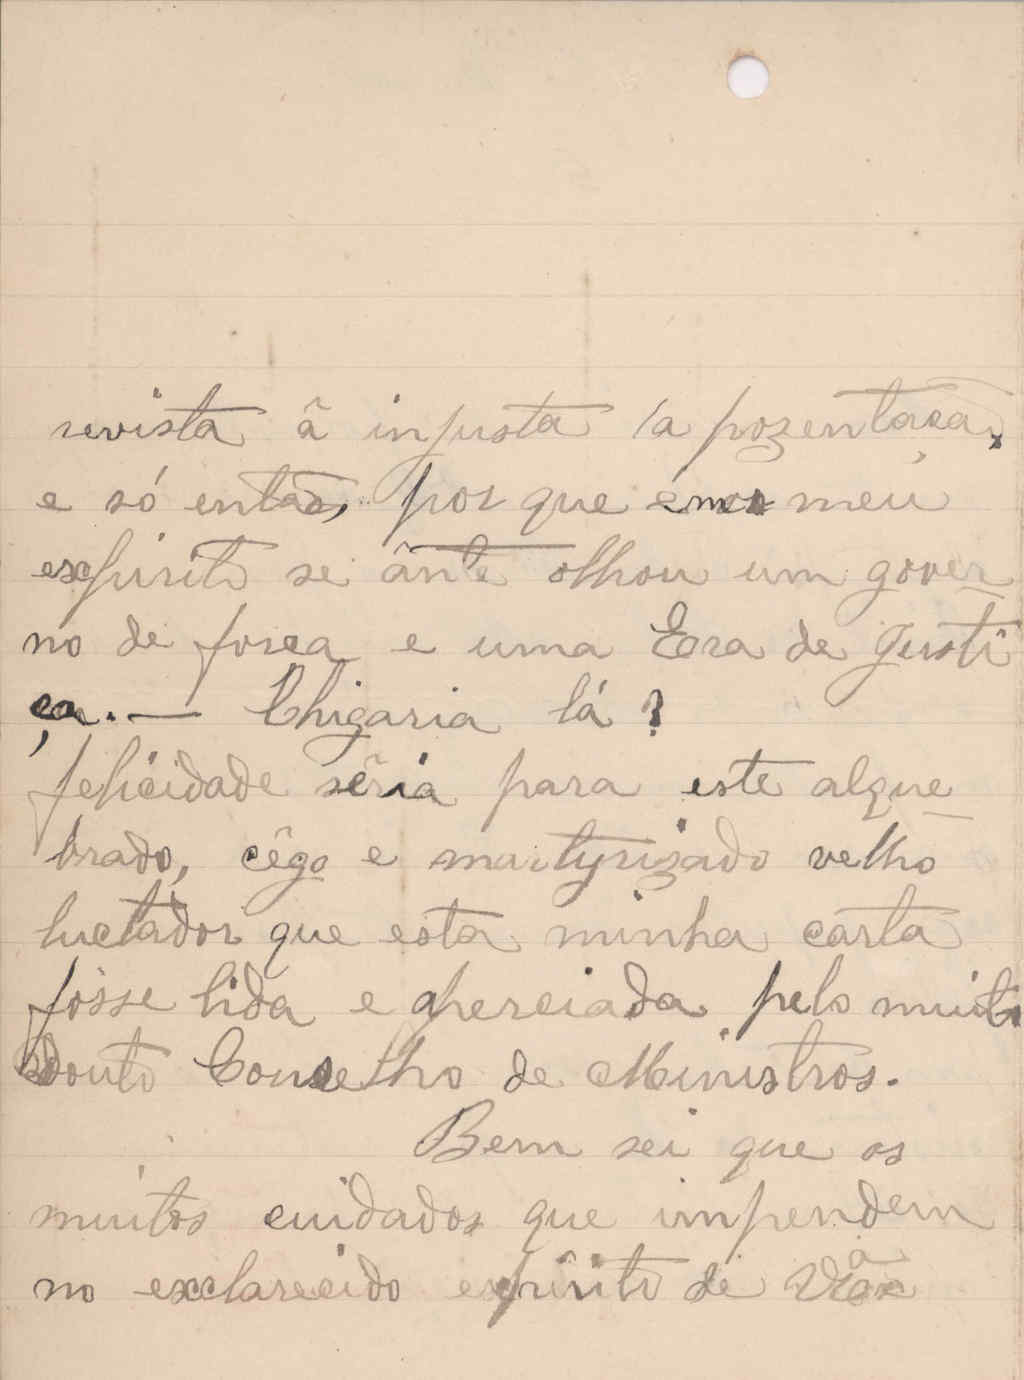 revista â injusta /a pozentaçaõ,
e só então, por que emo meu
expirito se ânte olhou um gover
no de força e uma Era de Justi
ça. — Chigaria lá?
felicidade sêria para este alque
brado, cêgo e martyrizado velho
luctador que esta minha carta
fôsse lida e aperciada pelo muito
douto Conselho de Ministros.
Bem sei que os
muitos cuidados que impendem
no exclarecido expirito de